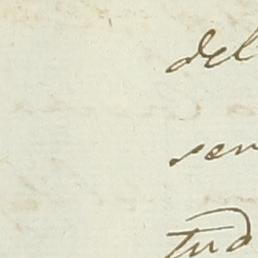 del
ser
tud